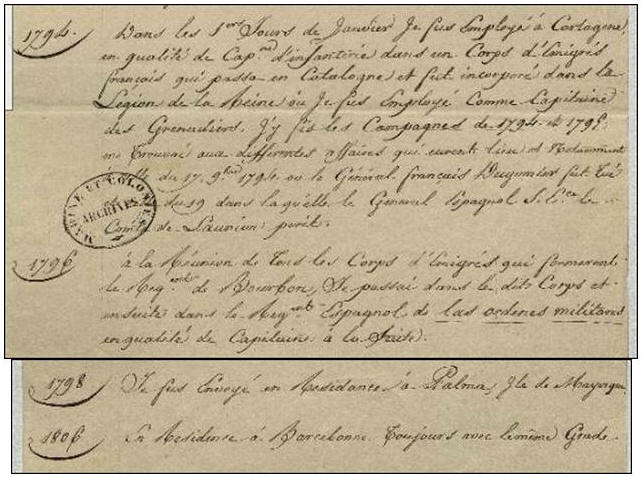 1794. Dans les 1ers Jours de Janvier Je fus Employé à Cartagene,
en qualité de Capne d'infantérie dans un Corps d'Emigrés
français qui passa en Catalogne et fut incorporé dans la
Légion de la Reine ou Je fus Employé Comme Capitaine
des Grenadiers. J'y fis les Campagnes de 1794 et 1795
me trouvai aux differentes affaires qui eurent lieu et Notamment
du 17. 9bre 1794 ou le Général français Dugomier fut Tué
du 19 dans laquelle le Général Espagnol le
Comte de Launion perit.
MARINE ET COLONIES
ARCHIVES
1796 à la Réunion de Tous les Corps d'Emigrés qui formerent
le Regment de Bourbon, Je passai dans le dit Corps et
ensuite dans le Regment Espagnol de las ordenes militares
en qualité de Capitaine à la Suite.
1798 Je fus Envoyé en Residance à Palma, Ile de Mayorque
1806 En Residence à Barcelonne Toujours avec le même Grade.